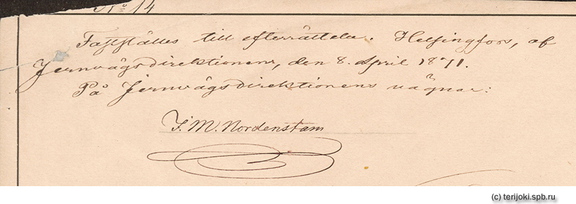 No 14
Fastställes till efterrättelse. Helsingfors, af
Jernvägsdirektionen, den 8 April 1871.
På Jernvägsdirektionens vägnar:
J. M. Nordenstam
(c) terijoki.spb.ru